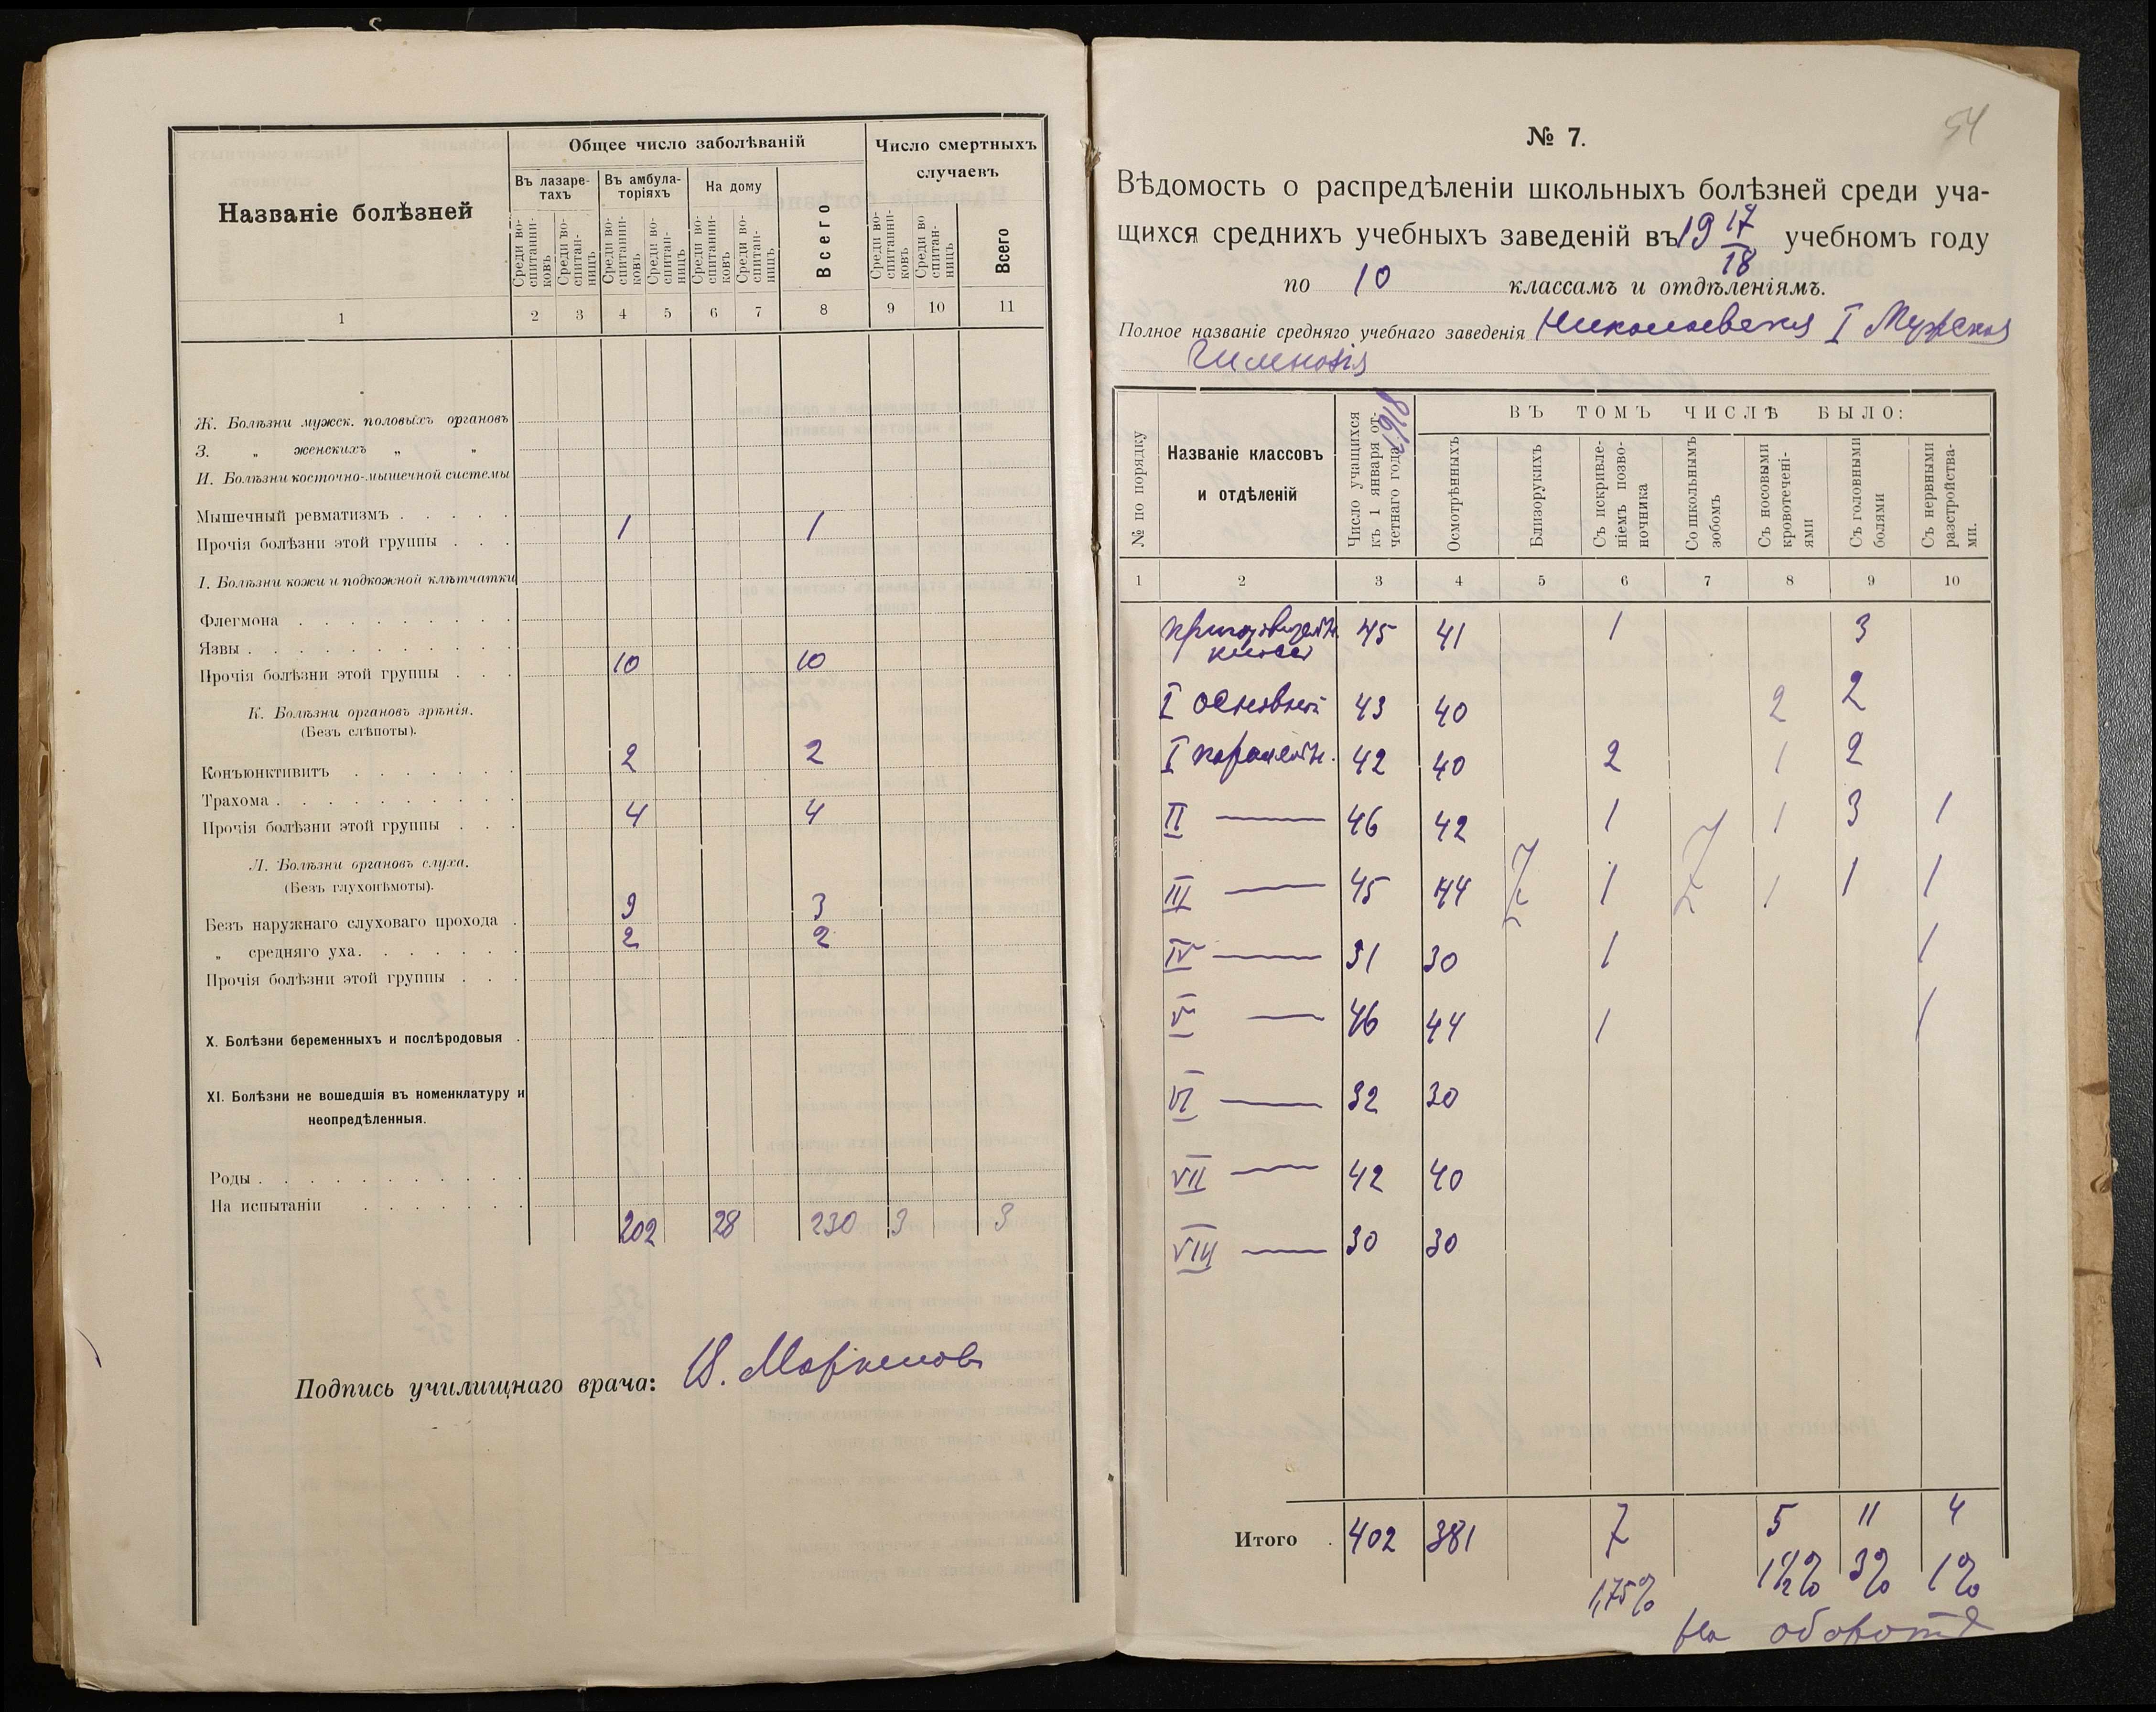 Названіе болѣзней
Общее число заболѣваній
Число смертныхъ случаевъ
Въ лазаре-
тахъ
Въ амбула-
торіяхъ
На дому
Всего
Среди во-
спитанни-
ковъ
Среди во-
спитан-
ницъ
Среди во-
спитанни-
ковъ
Среди во-
спитан-
ницъ
Среди во-
спитанни-
ковъ
Среди во-
спитан-
ницъ
Среди во-
спитанни-
ковъ
Среди во
спитан-
ницъ
Всего
1 2 3 4 5 6 7 8 9 10 11
Ж. Болѣзни мужск. половыхъ органовъ
З. „ женскихъ „ „
И. Болѣзни косточно-мышечной системы
Мышечный ревматизмъ
Прочія болѣзни этой группы 1 1
І. Болѣзни кожи и подкожной клѣтчатки
Флегмона
Язвы
Прочія болѣзни этой группы 10 10
К. Болѣзни органовъ зрѣнія.
(Безъ слѣпоты).
Конъюнктивитъ 2 2
Трахома
Прочія болѣзни этой группы 4 4
Л. Болѣзни органовъ слуха.
(Безъ глухонѣмоты).
Безъ наружнаго слуховаго прохода 3 3
„ средняго уха 2 2
Прочія болѣзни этой группы
X. Болѣзни беременныхъ и послѣродовыя
XI. Болѣзни не вошедшія въ номенклатуру и
неопредѣленныя.
Роды
На испытаніи
202 28 230 3 3
Подпись училищнаго врача:
54
№ 7.
Вѣдомость о распредѣленіи школьныхъ болѣзней среди уча-
щихся среднихъ учебныхъ заведеній въ 1917/18 учебномъ году
по 10 классамъ и отдѣленіямъ.
Полное названіе средняго учебнаго заведенія Николаевская I Мужская
Гимназія
№ по порядку
Названіе классовъ
и отдѣленій
Число учащихся
къ 1 января от-
четнаго года 1918
ВЪ ТОМЪ ЧИСЛѢ БЫЛО:
Осмотрѣнныхъ
Близорукихъ
Съ искривле-
ніемъ позво-
ночника
Со школьнымъ
зобомъ
Съ носовыми
кровотечені-
ями
Съ головными
болями
Съ нервными
разстройства-
ми.
1 2 3 4 5 6 7 8 9 10
Приготовительн. 45 41 1 3
класс
I основной 43 40 2 2
I параллельн. 42 40 2 1 2
II — 46 42 1 1 3 1
III — 45 44 1 1 1 1
IV — 31 30 1 1
V — 46 44 1 1
VI — 32 30
VII — 42 40
VIII — 30 30
Итого 402 381 7 5 11 4
1,75% 1½% 3% 1%
На оборотѣ